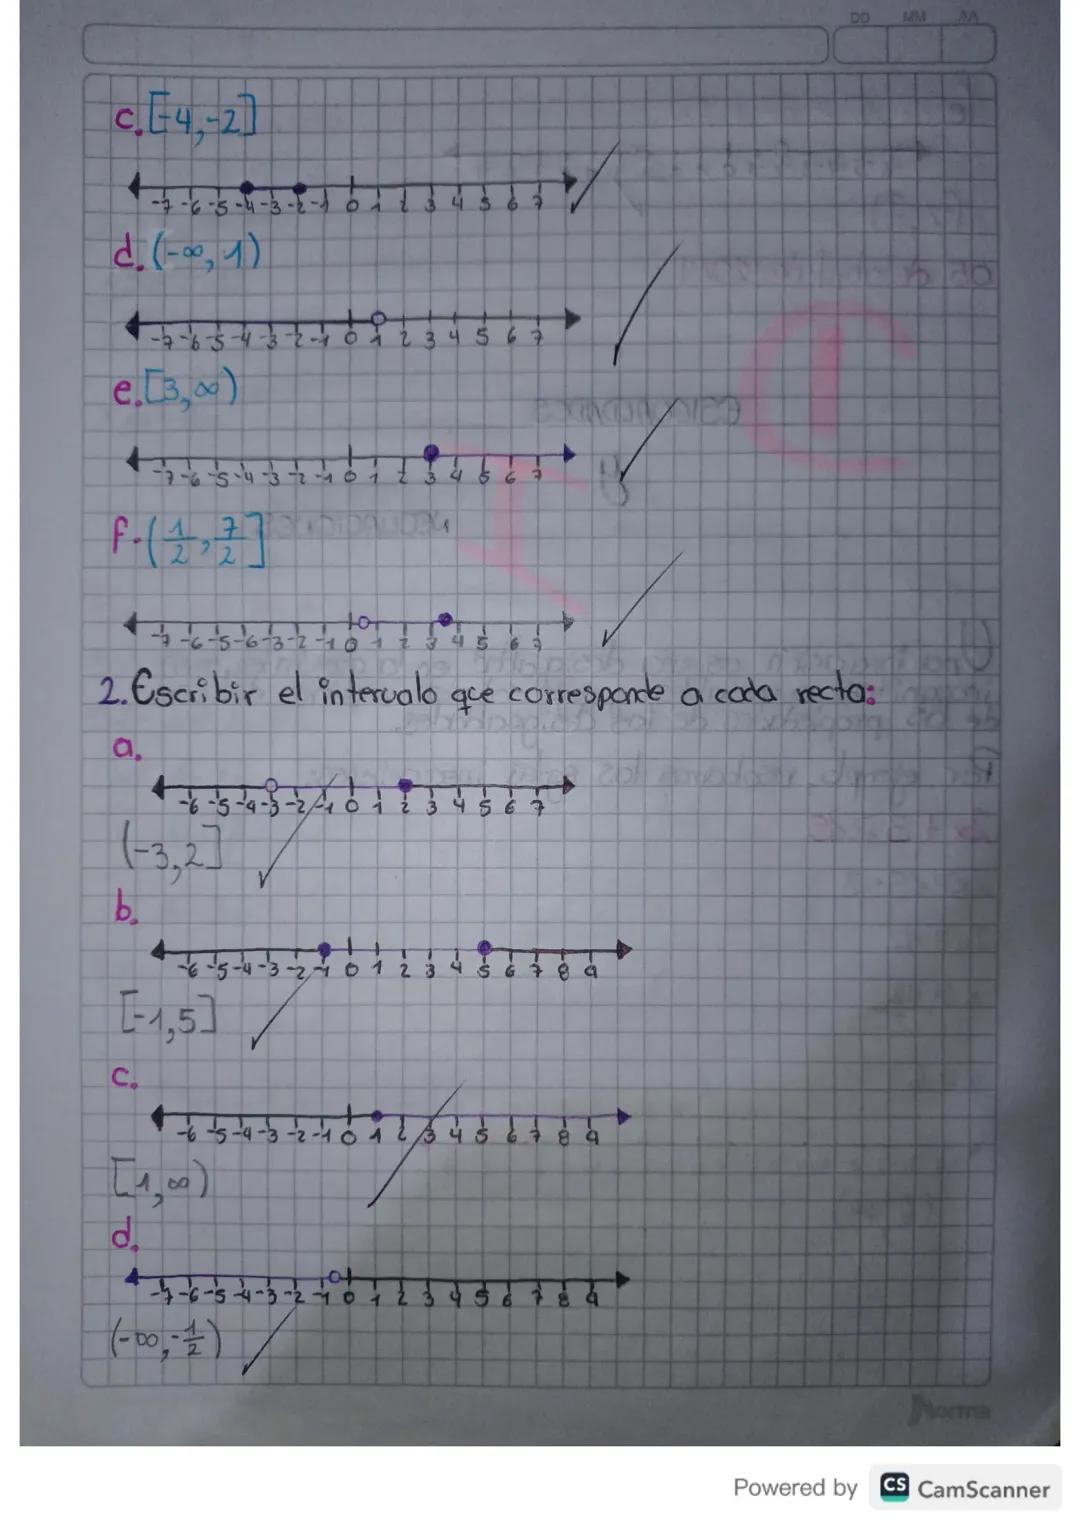 DD MM AA
c. [-4,-2]
-7 -6 -5 -4 -3 -2 -1 0 1 2 3 4 5 6 7
d. (-∞, 1)
-7 -6 -5 -4 -3 -2 -1 0 1 2 3 4 5 6 7
e. [3, ∞)
-7 -6 -5 -4 -3 -2 -1 0 1 2 3 4 5 6 7
f. (1/2, 7/2]
-7 -6 -5 -6 -3 -2 -1 0 1 2 3 4 5 6 7
2. Escribir el intervalo que corresponde a cada recta:
a.
-6 -5 -4 -3 -2 -1 0 1 2 3 4 5 6 7
(-3,2]
b.
-6 -5 -4 -3 -2 -1 0 1 2 3 4 5 6 7 8 9
[-1,5]
c.
-6 -5 -4 -3 -2 -1 0 1 2 3 4 5 6 7 8 9
[1,∞)
d.
-7 -6 -5 -4 -3 -2 -1 0 1 2 3 4 5 6 7 8 9
(-∞,-1/2)
Norma
Powered by CS CamScanner